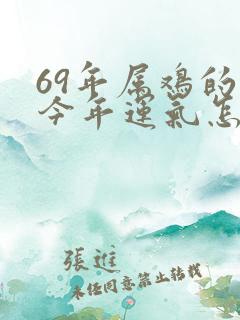 69年属鸡的
今年运气怎
張進
未经同意禁止转载